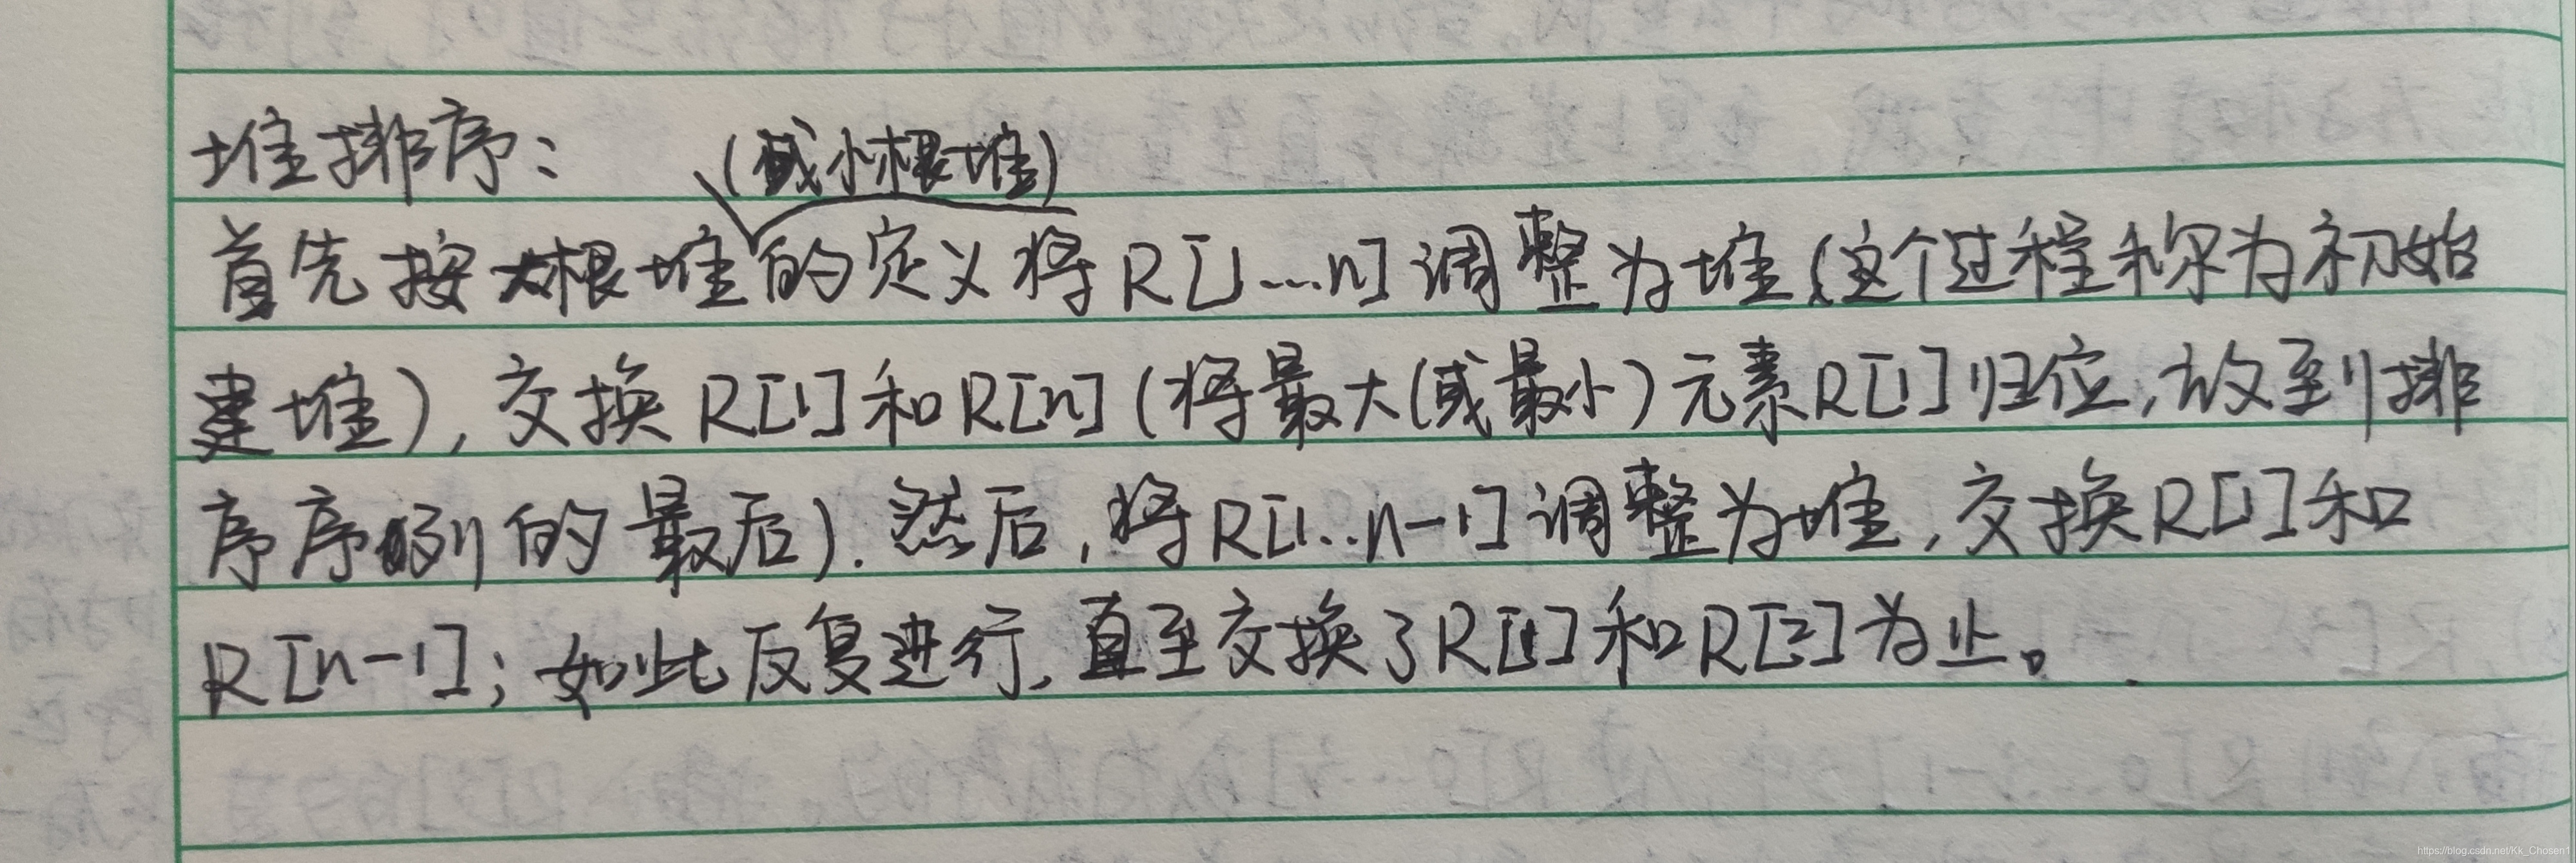 堆排序：
(或小根堆)
首先按大根堆的定义将R[1...n]调整为堆(这个过程称为初始
建堆),交换R[1]和R[n](将最大(或最小)元素R[1]归位,放到排
序序列的最后).然后,将R[1..n-1]调整为堆,交换R[1]和
R[n-1];如此反复进行,直至交换了R[1]和R[2]为止。
https://blog.csdn.net/Kk_Chosen1